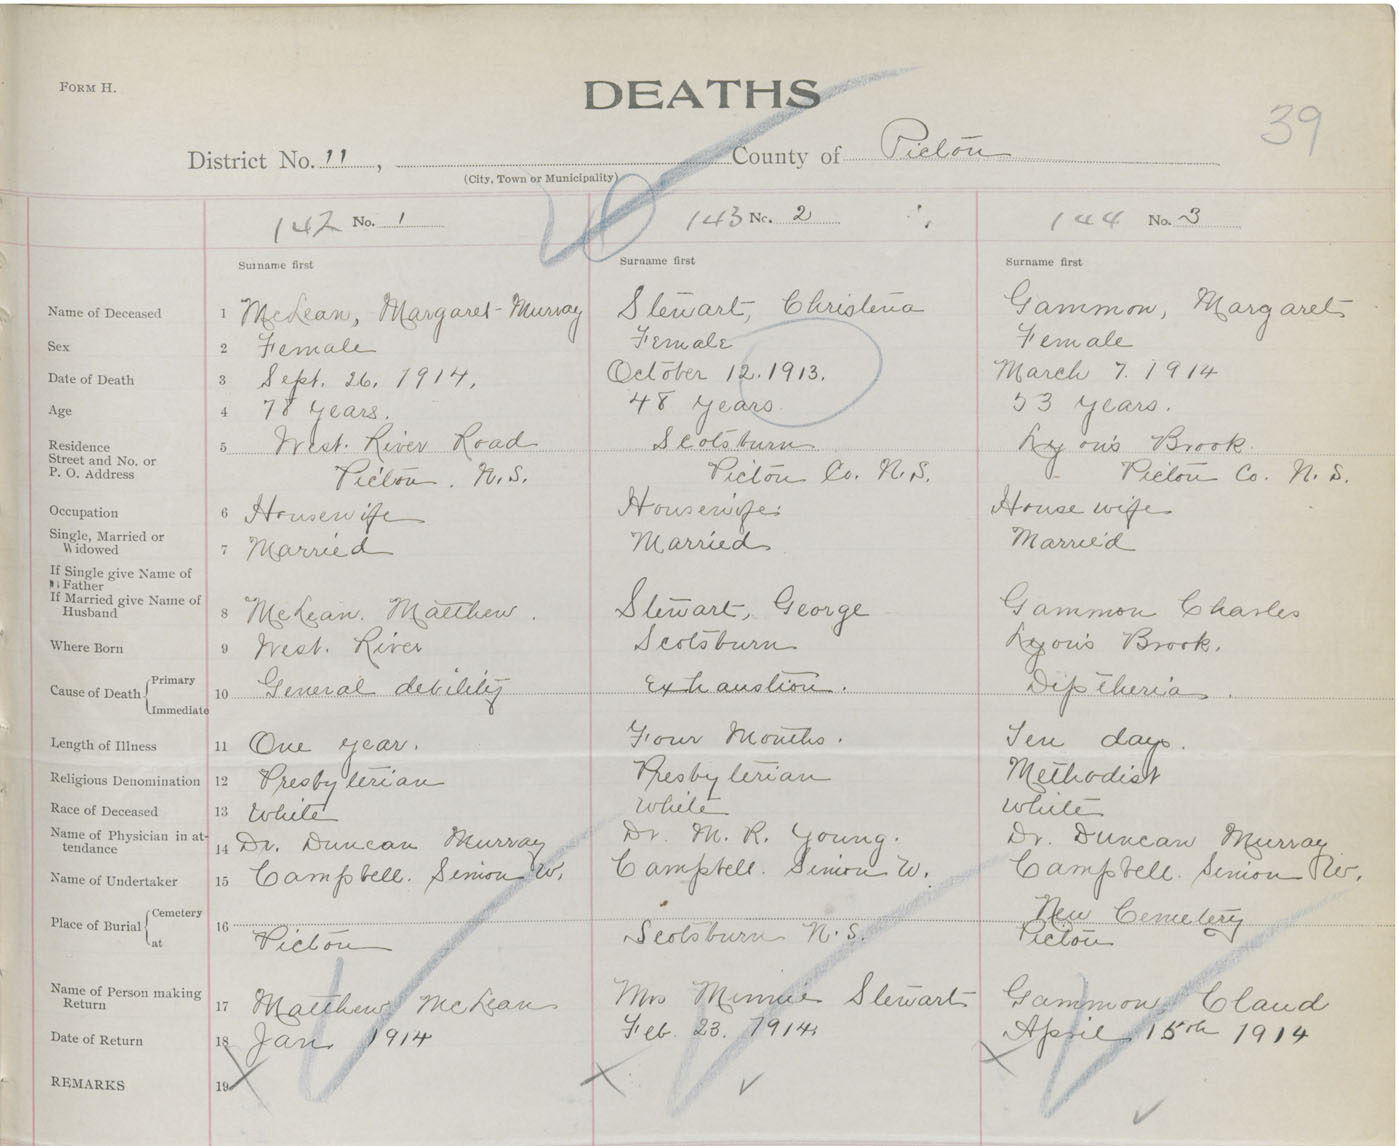 FORM H.
DEATHS
39
District No. 11, County of Pictou
(City, Town or Municipality)
142 No. 1 143 No. 2 144 No. 3
Surname first Surname first Surname first
Name of Deceased 1 McLean, Margaret-Murray Stewart, Christena Gammon, Margaret
Sex 2 Female Female Female
Date of Death 3 Sept. 26. 1914. October 12. 1913. March 7. 1914
Age 4 78 years. 48 years 53 years.
Residence 5 West. River Road Scotsburn Lyon's Brook.
Street and No. or
P. O. Address Pictou. N.S. Pictou Co. N.S. Pictou Co. N. S.
Occupation 6 Housewife Housewife House wife
Single, Married or
Widowed 7 Married Married Married
If Single give Name of
Father
If Married give Name of
Husband 8 McLean. Matthew. Stewart, George Gammon Charles
Where Born 9 West. River Scotsburn Lyon's Brook.
Cause of Death Primary 10 General debility Exhaustion. Diptheria.
Immediate
Length of Illness 11 One year. Four Months. Ten days.
Religious Denomination 12 Presbyterian Presbyterian Methodist
Race of Deceased 13 White White White
Name of Physician in at-
tendance 14 Dr. Duncan Murray Dr. M. R. Young. Dr. Duncan Murray
Name of Undertaker 15 Campbell. Simon W. Campbell. Simon W. Campbell. Simon W.
Place of Burial Cemetery 16 New Cemetery
at Pictou Scotsburn N.S. Pictou
Name of Person making
Return 17 Matthew McLean Mrs Minnie Stewart Gammon, Claud
Date of Return 18 Jan 1914 Feb. 23. 1914. April 15th 1914
REMARKS 19